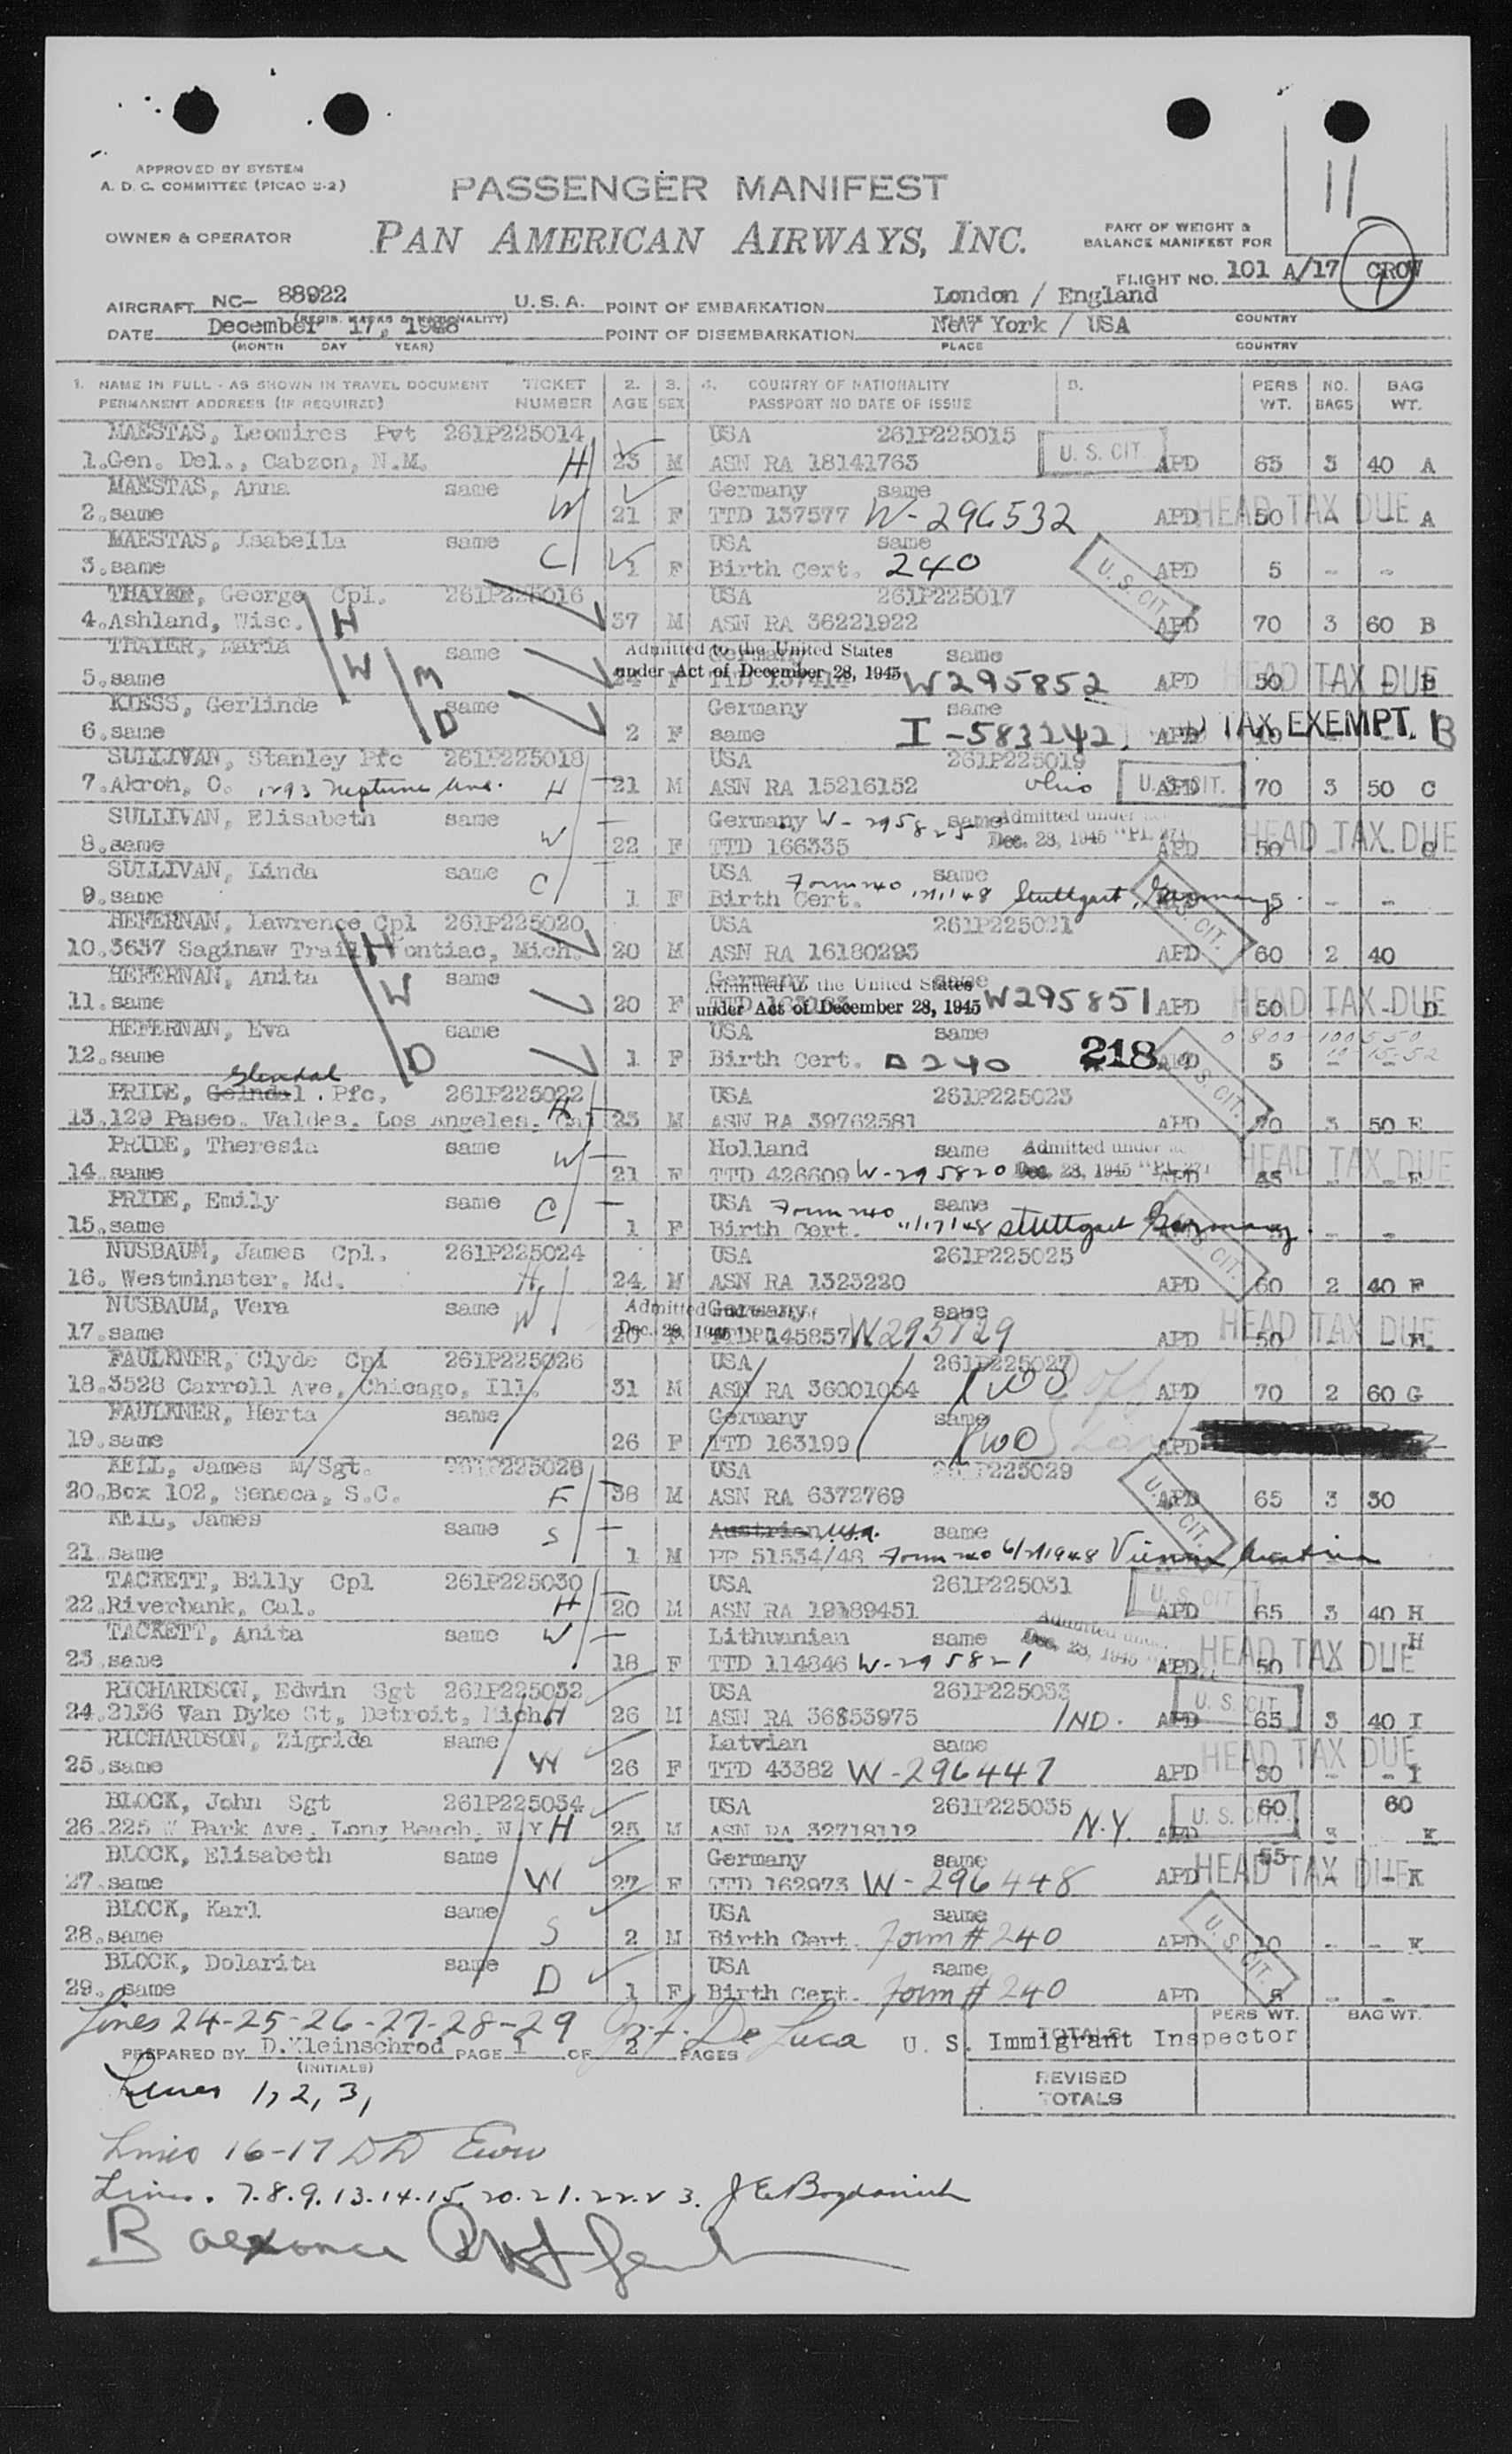 11
APPROVED BY SYSTEM
A. D. C. COMMITTEE (PICAO S-2)
PASSENGER MANIFEST
OWNER & OPERATOR
PAN AMERICAN AIRWAYS, INC.
PART OF WEIGHT &
BALANCE MANIFEST FOR
FLIGHT NO. 101 A/17 CROW
AIRCRAFT NC- 88922 U.S.A. POINT OF EMBARKATION London / England
(REGIS. MARKS & NATIONALITY) COUNTRY
DATE December 17, 1948 POINT OF DISEMBARKATION New York / USA
(MONTH DAY YEAR) PLACE COUNTRY
1. NAME IN FULL - AS SHOWN IN TRAVEL DOCUMENT TICKET 2. 3. 4. COUNTRY OF NATIONALITY PERS NO. BAG
PERMANENT ADDRESS (IF REQUIRED) NUMBER AGE SEX PASSPORT NO DATE OF ISSUE WT. BAGS WT.
MAESTAS, Leomires Pvt 261P225014 USA 261P225015 U. S. CIT
1.Gen. Del., Cabzon, N.M. H 23 M ASN RA 18141763 APD 65 3 40 A
MAESTAS, Anna same Germany same
2.same W 21 F TTD 137577 W-296532 APD 50 HEAD TAX DUE A
MAESTAS, Isabella same USA same
3.same C 1 F Birth Cert. 240 APD U. S. CIT. 5 - -
THAYER, George Cpl. 261P225016 USA 261P225017
4.Ashland, Wisc. H 37 M ASN RA 36221922 APD 70 3 60 B
THAYER, Maria same Admitted to the United States Germany same
5.same W under Act of December 28, 1945 W295852 APD 50 HEAD TAX DUE B
KIESS, Gerlinde M same Germany same
6.same D 2 F same I-583242 APD 10 TAX EXEMPT. B
SULLIVAN, Stanley Pfc 261P225018 USA 261P225019
7.Akron, O. 1293 Neptune Ave. H 21 M ASN RA 15216152 Ohio U. S. CIT. APD 70 3 50 C
SULLIVAN, Elisabeth same Germany W-295825 same Admitted under
8.same W 22 F TTD 166335 Dec. 28, 1945 "PL 271 APD 50 HEAD TAX DUE C
SULLIVAN, Linda same USA same
9.same C 1 F Birth Cert. Form 240 Stuttgart, Germany U. S. CIT. 5 - -
HEFERNAN, Lawrence Cpl 261P225020 USA 261P225021
10.3637 Saginaw Trail, Pontiac, Mich. H 20 M ASN RA 16180293 APD 60 2 40
HEFERNAN, Anita same Germany same
11.same W 20 F Admitted to the United States under Act of December 28, 1945 W295851 APD 50 HEAD TAX DUE D
HEFERNAN, Eva same USA same
12.same D 1 F Birth Cert. 240 218 U. S. CIT. 5 - -
Glendal
PRIDE, Pfc. 261P225022 USA 261P225023
13.129 Paseo. Valdes. Los Angeles. Cal H 23 M ASN RA 39762581 APD 70 3 50 E
PRIDE, Theresia same Holland same Admitted under
14.same W 21 F TTD 426609 W-295820 Dec. 28, 1945 "PL 271 HEAD TAX DUE E
PRIDE, Emily same USA Form 240 same
15.same C 1 F Birth Cert. 11/17/48 Stuttgart Germany. U. S. CIT. - -
NUSBAUM, James Cpl. 261P225024 USA 261P225025
16. Westminster, Md. H 24 M ASN RA 1323220 APD 60 2 40 F
NUSBAUM, Vera same Admitted Germany same
17.same W 20 F Dec. 28, 1945 TTD 145857 W295829 APD 50 HEAD TAX DUE
FAULKNER, Clyde Cpl 261P225026 USA 261P225027
18.3528 Carroll Ave, Chicago, Ill. 31 M ASN RA 36001064 APD 70 2 60 G
FAULKNER, Herta same Germany same
19.same 26 F TTD 163199 APD
KEIL, James M/Sgt. 261P225028 USA 261P225029
20.Box 102, Seneca, S.C. F 38 M ASN RA 6372769 APD U. S. CIT. 65 3 30
KEIL, James same Austrian U.S.A. same
21.same S 1 M PP 51534/48 Form 240 Vienna, Austria
TACKETT, Billy Cpl 261P225030 USA 261P225031 U. S. CIT
22.Riverbank, Cal. H 20 M ASN RA 19189451 APD 65 3 40 H
TACKETT, Anita same Lithuanian same Admitted under H
23.same W 18 F TTD 114846 W-295821 Dec. 28, 1945 APD 50 HEAD TAX DUE
RICHARDSON, Edwin Sgt 261P225032 USA 261P225033 U. S. CIT
24.2136 Van Dyke St, Detroit, Mich H 26 M ASN RA 36853975 IND. APD 65 3 40 I
RICHARDSON, Zigrida same Latvian same HEAD TAX DUE
25.same W 26 F TTD 43382 W-296447 APD 50 - - I
BLOCK, John Sgt 261P225034 USA 261P225035 U. S. CIT. 60 60
26.225 W Park Ave. Long Beach, N.Y H 25 M ASN RA 32718112 N.Y. APD 3 K
BLOCK, Elisabeth same Germany same 55
27.same W 27 F TTD 162973 W-296448 APD HEAD TAX DUE - K
BLOCK, Karl same USA same
28.same S 2 M Birth Cert. Form # 240 APD U. S. CIT. 10 - - K
BLOCK, Dolarita same USA same
29. same D 1 F Birth Cert. Form # 240 APD 5 - -
Lines 24-25-26-27-28-29 De Luca U. S. Immigrant Inspector TOTALS PERS WT. BAG WT.
PREPARED BY D.Kleinschrod PAGE 1 OF 2 PAGES
(INITIALS)
REVISED TOTALS
Lines 1, 2, 3,
Lines 16-17
Lines. 7.8.9.13.14.15.20.21.22.23.